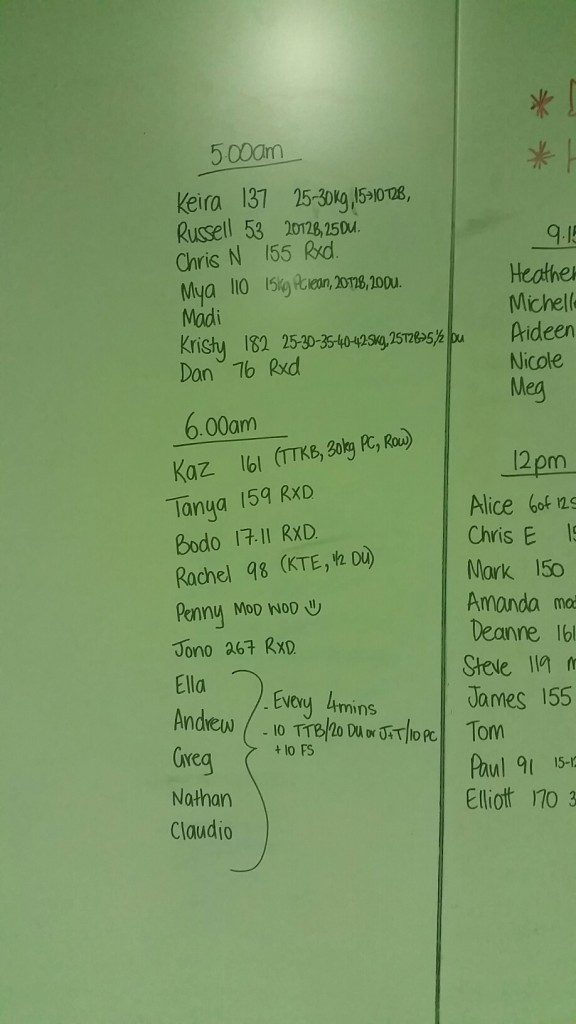 5.00am
Keira 137 25-30kg, 15→10T2B,
Russell 53 20T2B, 25DU.
Chris N 155 Rxd.
Mya 110 15kg PClean, 20T2B, 20DU.
Madi
Kristy 182 25-30-35-40-42.5kg, 25T2B→5, 1/2 DU
Dan 76 Rxd
6.00am
Kaz 161 (TTKB, 30kg PC, Row)
Tanya 159 RXD.
Bodo 17.11 RXD.
Rachel 98 (KTE, 1/2 DU)
Penny MOD WOD
Jono 267 RXD.
Ella
Andrew
Greg
Nathan
Claudio
- Every 4mins
- 10 TTB/20 DU or J+T/10 PC
+ 10 FS
*
*
9.15
Heather
Michelle
Aideen
Nicole
Meg
12pm
Alice 6 of 12
Chris E
Mark 150
Amanda
Deanne 161
Steve 119
James 155
Tom
Paul 91 15-12
Elliott 170 3